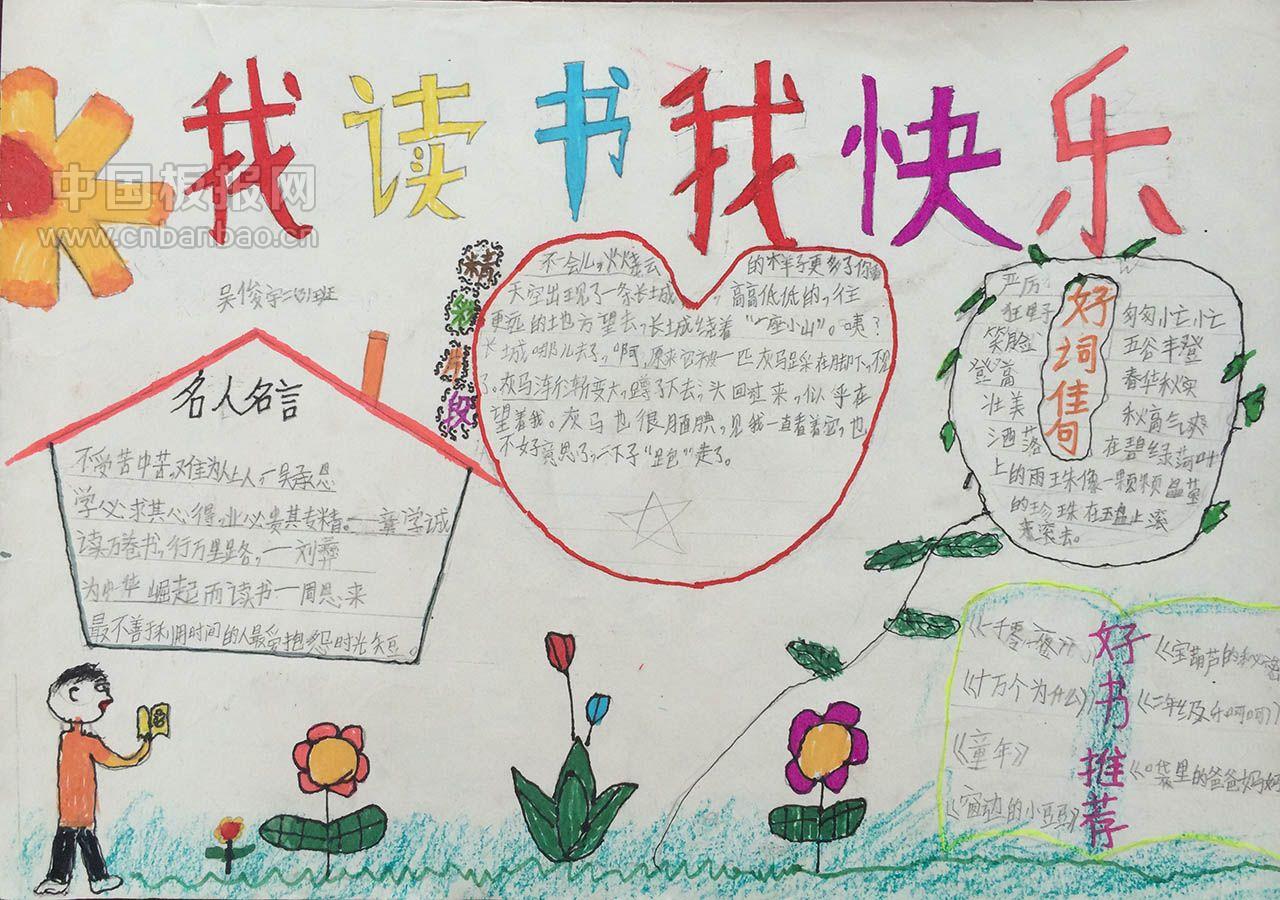 我读书我快乐
中国板报网
www.cnbanbao.cn
吴俊宇
名人名言
不受苦中苦,难为人上人,一吴承恩
学必求其心得,业必贵其专精。——章学诚
读万卷书,行万里路,——刘彝
为中华崛起而读书一周恩来
最不善于利用时间的人最受抱怨时光短。
精彩片段
不一会儿,火烧云
的水羊子更多了你看
天空出现了一条长城
高高低低的,往
更远的地方望去,长城绕着“一座小山”。咦?
长城哪儿去了,“啊,原来它被一匹灰马踩在脚下,不见
了。灰马渐渐变大,蹲了下去,头回过来,似乎在
望着我。灰马也很腼腆,见我一直看着它,也
不好意思了,一下子“跑”走了。
好词佳句
严厉
狂野
笑脸
登高
壮美
洒落
匆匆忙忙
五谷丰登
春华秋实
秋高气爽
在碧绿荷叶
上的雨珠像一颗颗晶莹
的珍珠在玉盘上滚
来滚去。
好书推荐
《一千零一夜》
《十万个为什么》
《童年》
《窗边的小豆豆》
《宝葫芦的秘密
《二年级乐呵呵》
《口袋里的爸爸妈妈